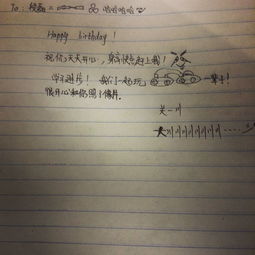 To: 哈哈哈哈
Happy birthday!
祝你天天开心，身高快点赶上我！
学习进步！我们一起玩 一辈子！
很开心和你照了像片。
关一川
关川川川川川川川……